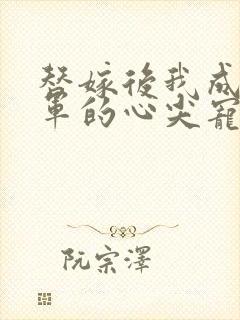 替嫁後我成
軍的心尖寵
阮宗澤